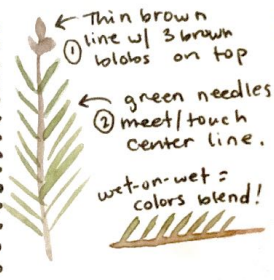 ← Thin brown
① line w/ 3 brown
blobs on top
← green needles
② meet/touch
center line.
wet-on-wet =
colors blend!